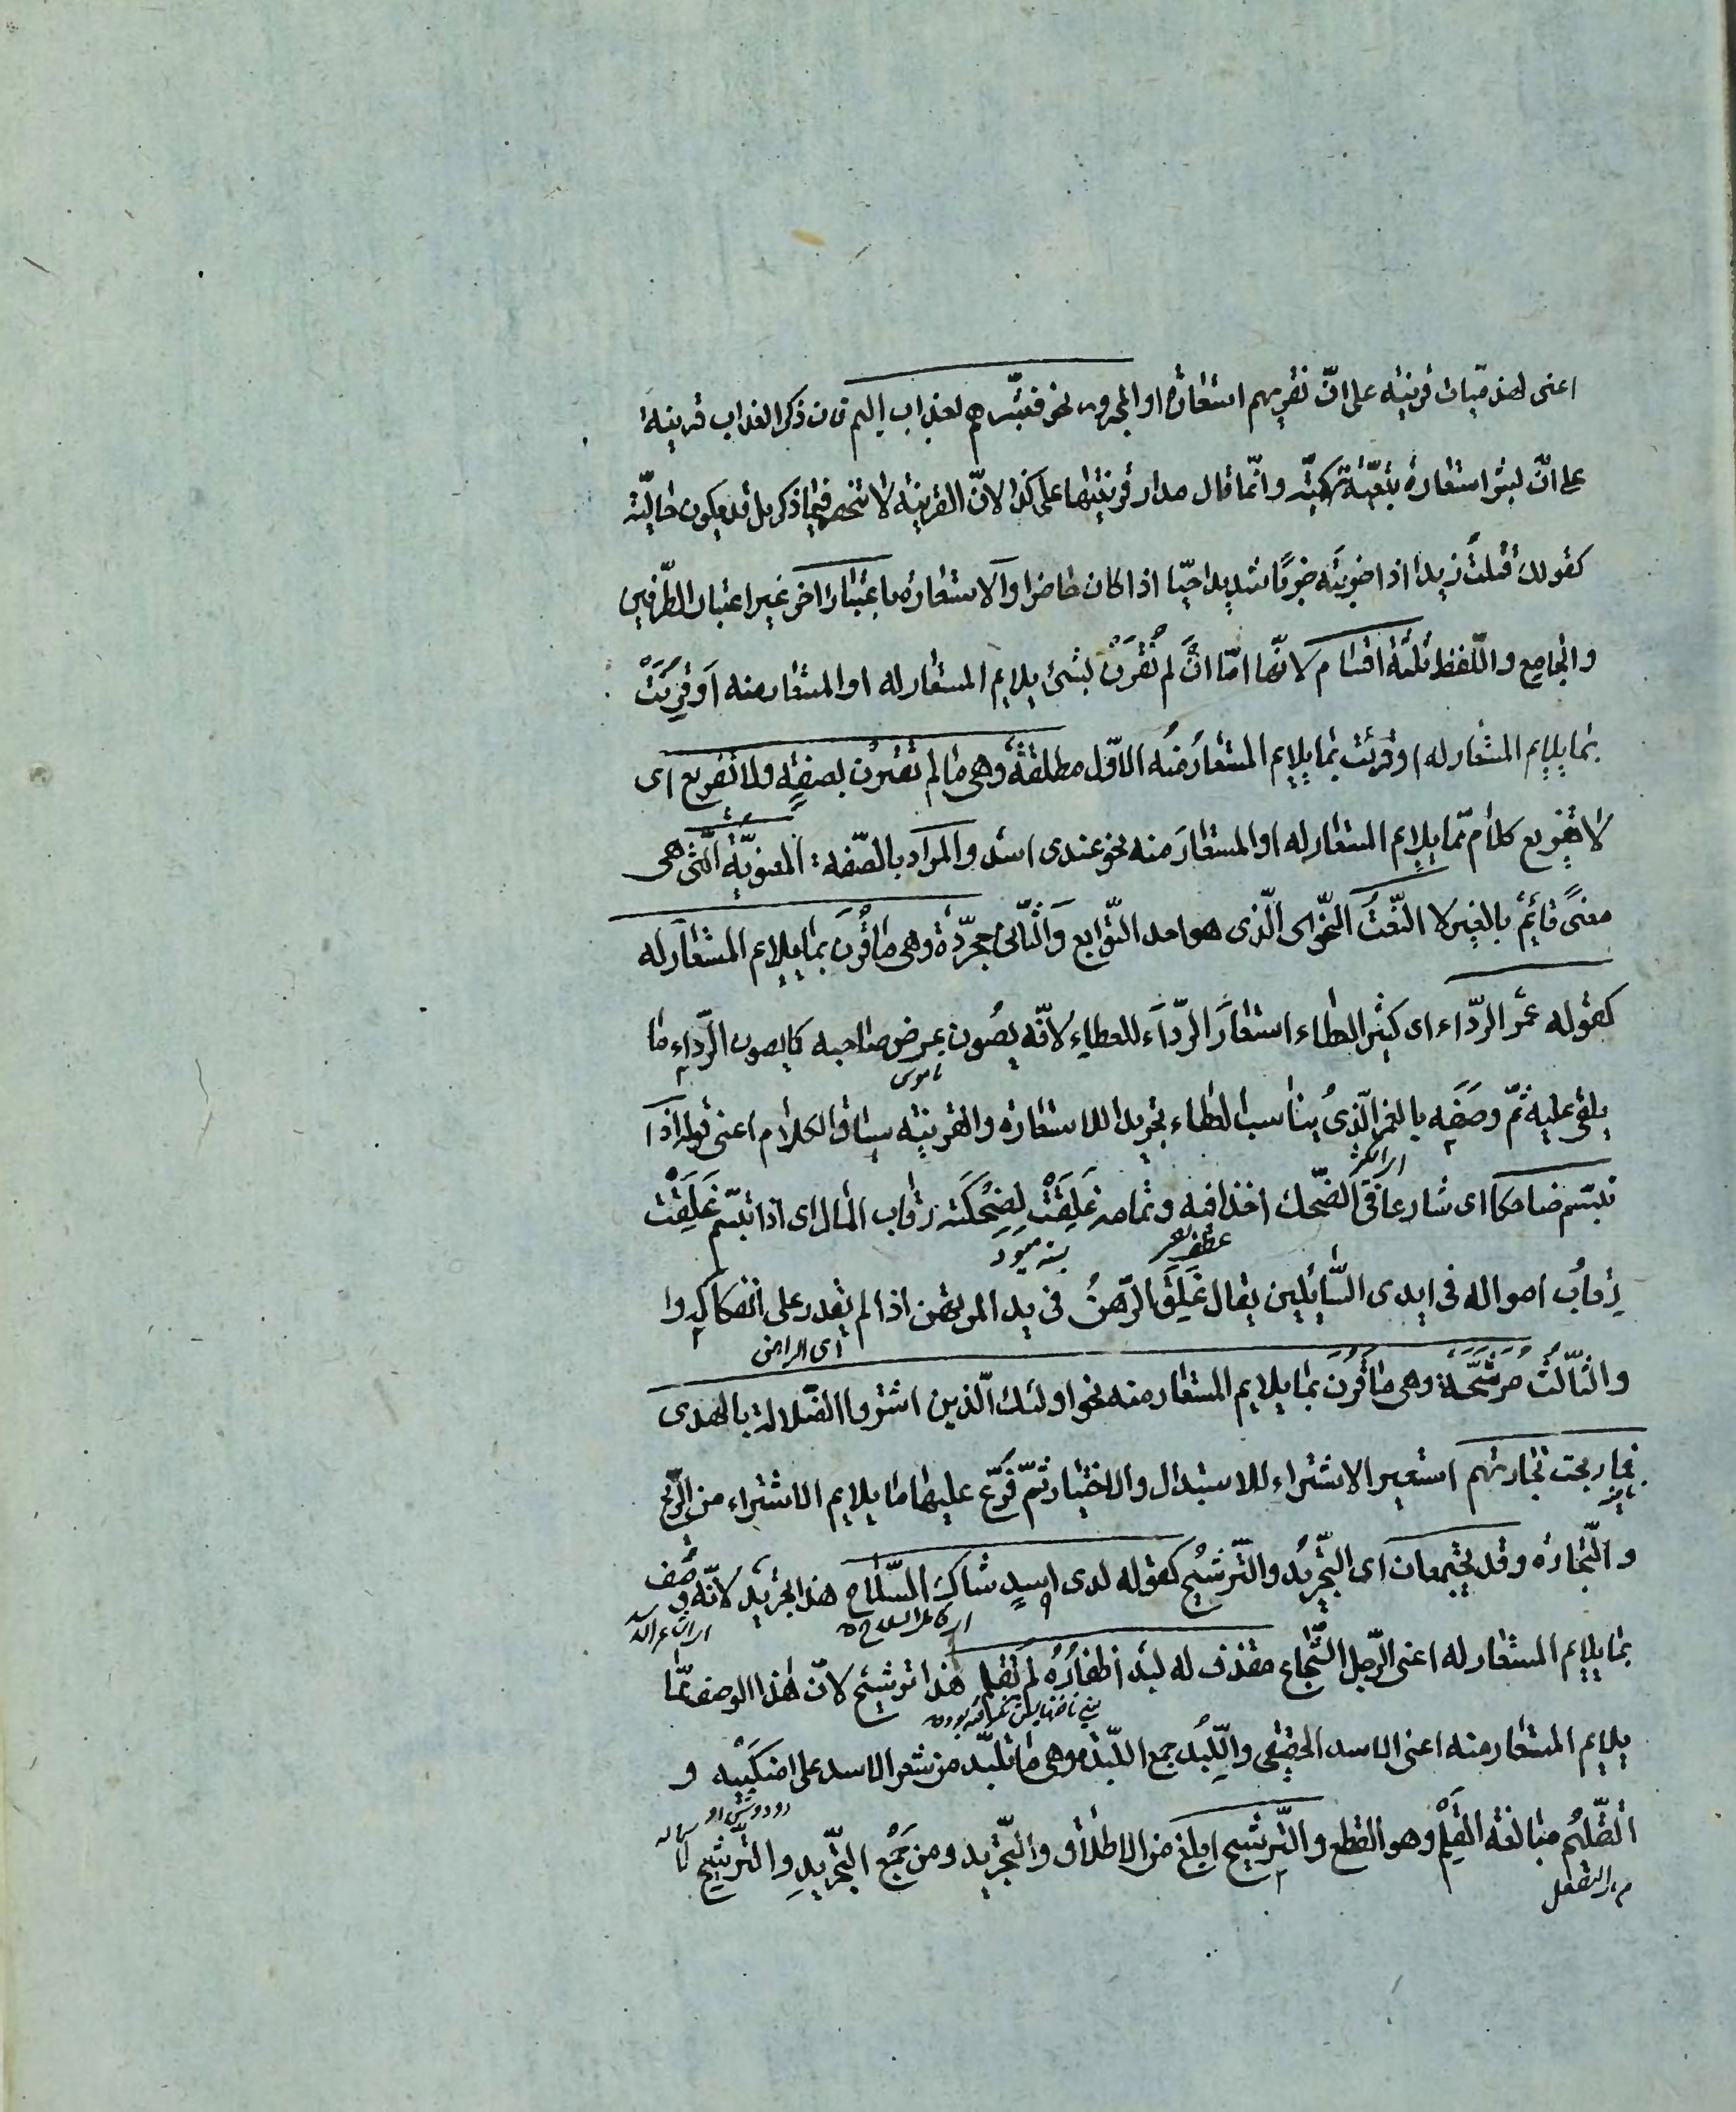 اعنى لهذميات قرينة على انّ نقريهم استعارة او المجرور نحو فبشّرهم بعذاب اليم فان ذكر العذاب قرينة
على انّ بشر استعارة تبعيّة تهكميّة وانّما قال مدار قرينتها على كذا لانّ القرينة لا تنحصر فيما ذكر بل قد يكون حاليّة
كقولك قتلت زيدا اذا ضربته ضربًا شديدا حيّا اذا كان حاضرا والاستعارة باعتبار اخر غير اعتبار الطّرفين
والجامع واللّفظ ثلثة اقسام لانّها امّا ان لم تقرن بشئ يلايم المستعار له او المستعار منه او قرنت
بما يلايم المستعار له او قرنت بما يلايم المستعار منه الاوّل مطلقة وهى ما لم تقترن بصفة ولا تفريع اى
لا تفريع كلام ممّا يلايم المستعار له او المستعار منه نحو عندى اسد والمراد بالصّفة المعنويّة الّتى هى
معنًى قائم بالغير لا النّعت النّحوى الّذى هو احد التّوابع والثّانى مجرّدة وهى ما قرن بما يلايم المستعار له
كقوله غمر الرّداء اى كثير العطاء استعار الرّداء للعطاء لانّه يصون عرض صاحبه كما يصون الرّداء ما
ناموس
يلقى عليه ثمّ وصفه بالغمر الّذى يناسب العطاء تجريدا للاستعارة والقرينة سياق الكلام اعنى قوله اذا
تبسّم ضاحكا اى شارعا فى الضّحك اخذا فيه وتمامه غلقت لضحكته رقاب المال اى اذا تبسّم غلقت
رقاب امواله فى ايدى السّايلين يقال غلق الرّهن فى يد المرتهن اذا لم يقدر على انفكاكه
اى الراهن
والثّالث مرشّحة وهى ما قرن بما يلايم المستعار منه نحو اولئك الّذين اشتروا الضّلالة بالهدى
فما ربحت تجارتهم استعير الاشتراء للاستبدال والاختيار ثمّ فرّع عليهما ما يلايم الاشتراء من الرّبح
والتّجارة وقد يجتمعان اى التّجريد والتّرشيح كقوله لدى اسد شاك السّلاح هذا تجريد لانّه وصف
بما يلايم المستعار له اعنى الرّجل الشّجاع مقذف له لبد اظفاره لم تقلم هذا ترشيح لانّ هذا الوصف ممّا
يلايم المستعار منه اعنى الاسد الحقيقى واللّبد جمع اللّبدة وهى ما تلبّد من شعر الاسد على منكبيه و
التّقليم مبالغة القلم وهو القطع والتّرشيح ابلغ من الاطلاق والتّجريد ومن جمع التّجريد والتّرشيح